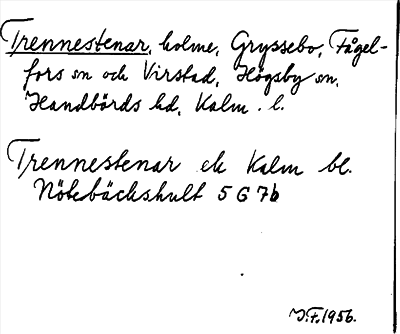 Trennestenar, holme, Gryssebo, Fågel-
fors sn och Virstad, Högsby sn,
Handbörds hd, Kalm. l.
Trennestenar ek Kalm bl.
Nötebäckshult 5 G 7b
J.F. 1956.